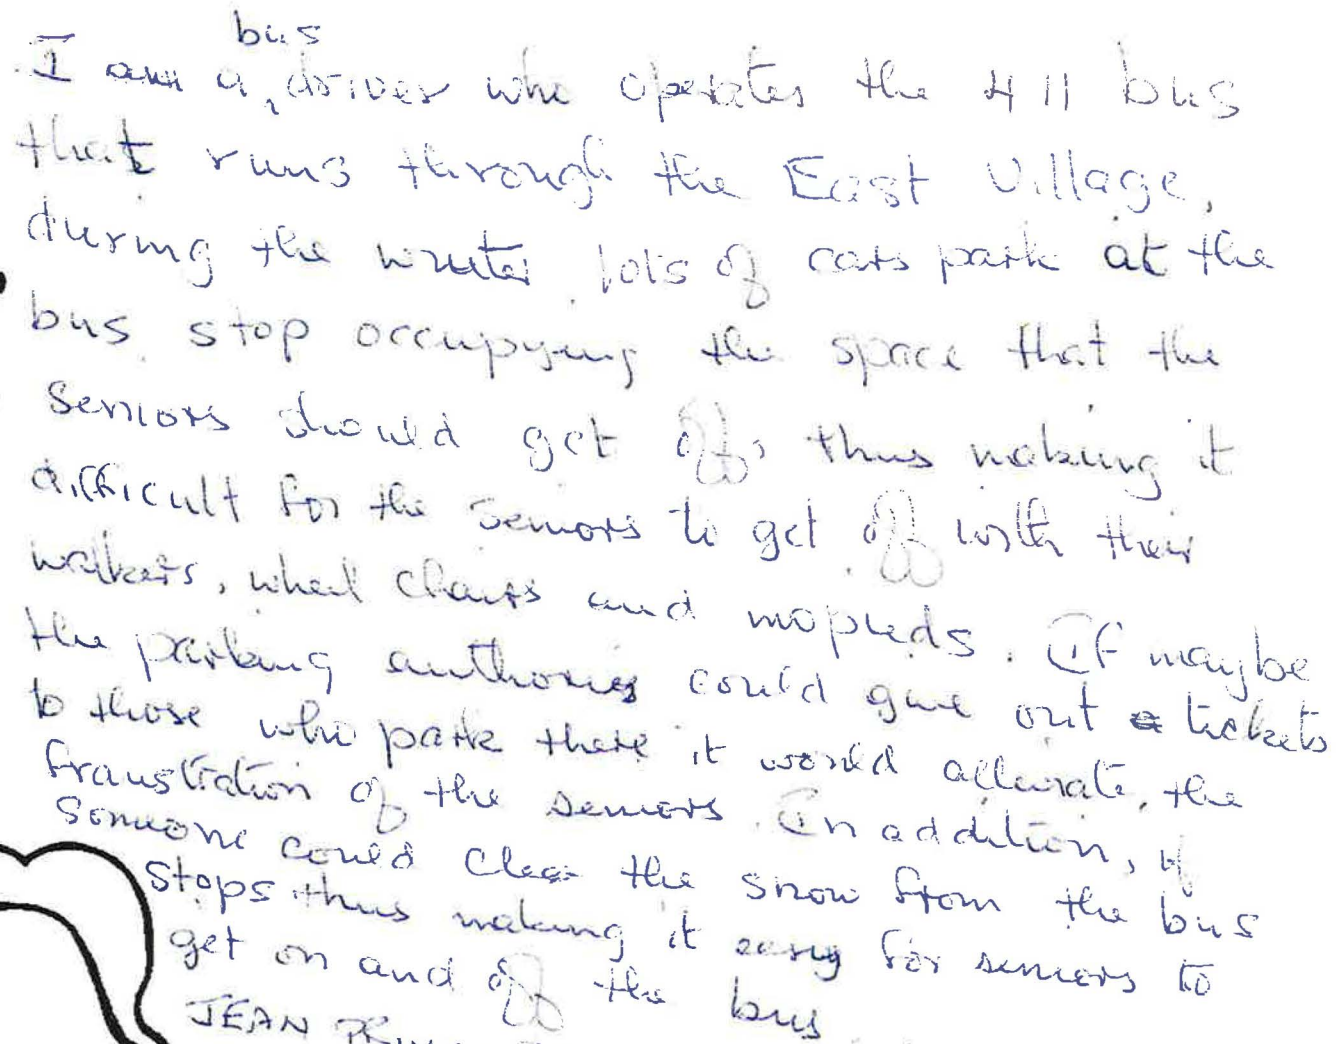 bus
I am a, driver who operates the 411 bus
that runs through the East Village,
during the winter lots of cars park at the
bus stop occupying the space that the
Seniors should get off, thus making it
difficult for the Seniors to get off with their
walkers, wheel chairs and mopeds. If maybe
the parking authories could give out a tickets
to those who park there it would alleviate, the
fraustration of the seniors. In addition, if
Someone could clear the snow from the bus
stops thus making it easy for seniors to
get on and off the bus
JEAN